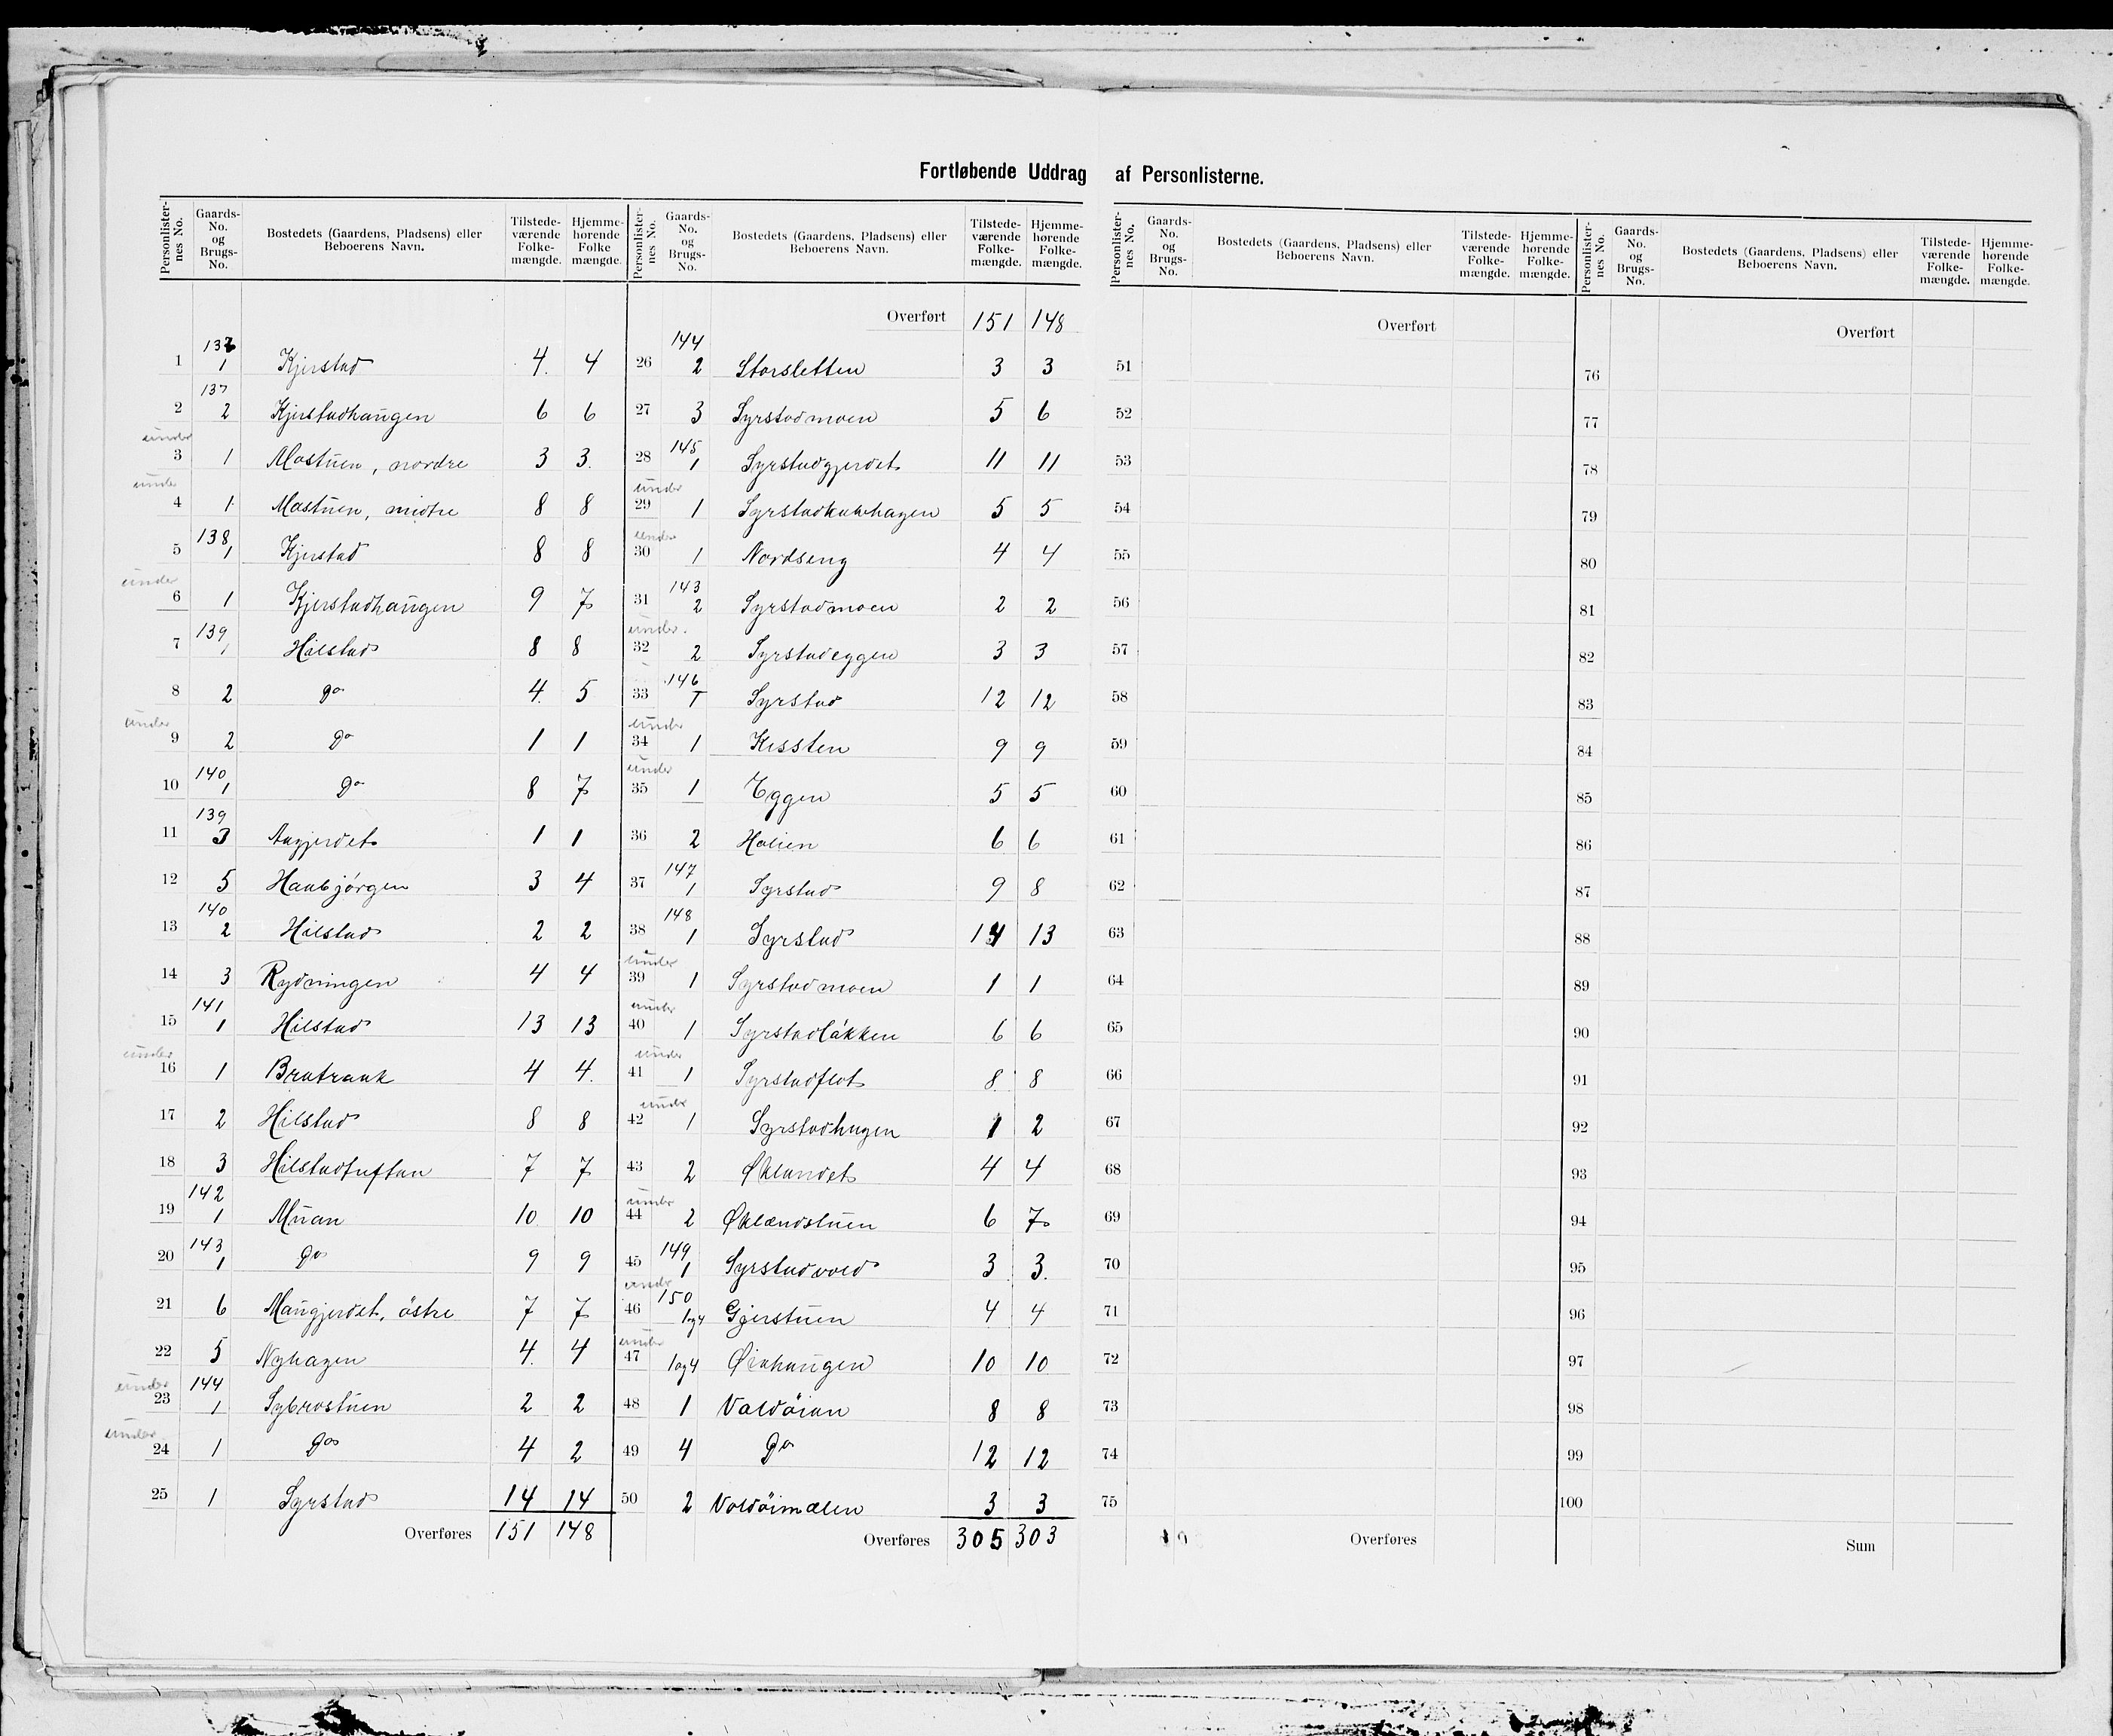 Fortløbende Uddrag af Personlisterne.
Personlister-nes No. Gaards-No. og Brugs-No. Bostedets (Gaardens, Pladsens) eller Beboerens Navn. Tilstede-værende Folke-mængde. Hjemme-hørende Folke mængde.
1 137 1 Kjerstad 4 4
2 137 2 Kjerstadhaugen 6 6
under 3 1 Mostuen, nordre 3 3
under 4 1 Mostuen, midtre 8 8
5 138 1 Kjerstad 8 8
under 6 1 Kjerstadhaugen 9 7
7 139 1 Hilstad 8 8
8 2 Do 4 5
under 9 2 Do 1 1
10 140 1 Do 8 7
11 139 3 Aagjerdet 1 1
12 5 Haubjørgen 3 4
13 140 2 Hilstad 2 2
14 3 Rydningen 4 4
15 141 1 Hilstad 13 13
under 16 1 Bratrank 4 4
17 2 Hilstad 8 8
18 3 Hilstadtuftan 7 7
19 142 1 Muan 10 10
20 143 1 Do 9 9
21 6 Maugjerdet, östre 7 7
22 5 Nyhagen 4 4
under 23 144 1 Sybrostuen 2 2
under 24 1 Do 4 2
25 1 Syrstad 14 14
Overføres 151 148
Personlister-nes No. Gaards-No. og Brugs-No. Bostedets (Gaardens, Pladsens) eller Beboerens Navn. Tilstede-værende Folke-mængde. Hjemme-hørende Folke-mængde.
Overført 151 148
26 144 2 Storsletten 3 3
27 3 Syrstadmoen 5 6
28 145 1 Syrstadgjerdet 11 11
under 29 1 Syrstadkuvhagen 5 5
under 30 1 Nordseng 4 4
31 143 2 Syrstadmoen 2 2
under 32 2 Syrstadeggen 3 3
33 146 1 Syrstad 12 12
under 34 1 Kissten 9 9
under 35 1 Eggen 5 5
36 2 Holien 6 6
37 147 1 Syrstad 9 8
38 148 1 Syrstad 14 13
under 39 1 Syrstadmoen 1 1
under 40 1 Syrstadlökken 6 6
under 41 1 Syrstadflot 8 8
under 42 1 Syrstadhagen 1 2
43 2 Øklandet 4 4
under 44 2 Øklandstuen 6 7
45 149 1 Syrstadvold 3 3
under 46 150 1og4 Gjerstuen 4 4
under 47 1og4 Øiahaugen 10 10
48 1 Voldöian 8 8
49 4 Do 12 12
50 2 Voldöimælen 3 3
Overføres 305 303
Personlister-nes No. Gaards-No. og Brugs-No. Bostedets (Gaardens, Pladsens) eller Beboerens Navn. Tilstede-værende Folke-mængde. Hjemme-hørende Folke-mængde.
Overført
51
52
53
54
55
56
57
58
59
60
61
62
63
64
65
66
67
68
69
70
71
72
73
74
75
Overføres
Personlister-nes No. Gaards-No. og Brugs-No. Bostedets (Gaardens, Pladsens) eller Beboerens Navn. Tilstede-værende Folke-mængde. Hjemme-hørende Folke-mængde.
Overført
76
77
78
79
80
81
82
83
84
85
86
87
88
89
90
91
92
93
94
95
96
97
98
99
100
Sum